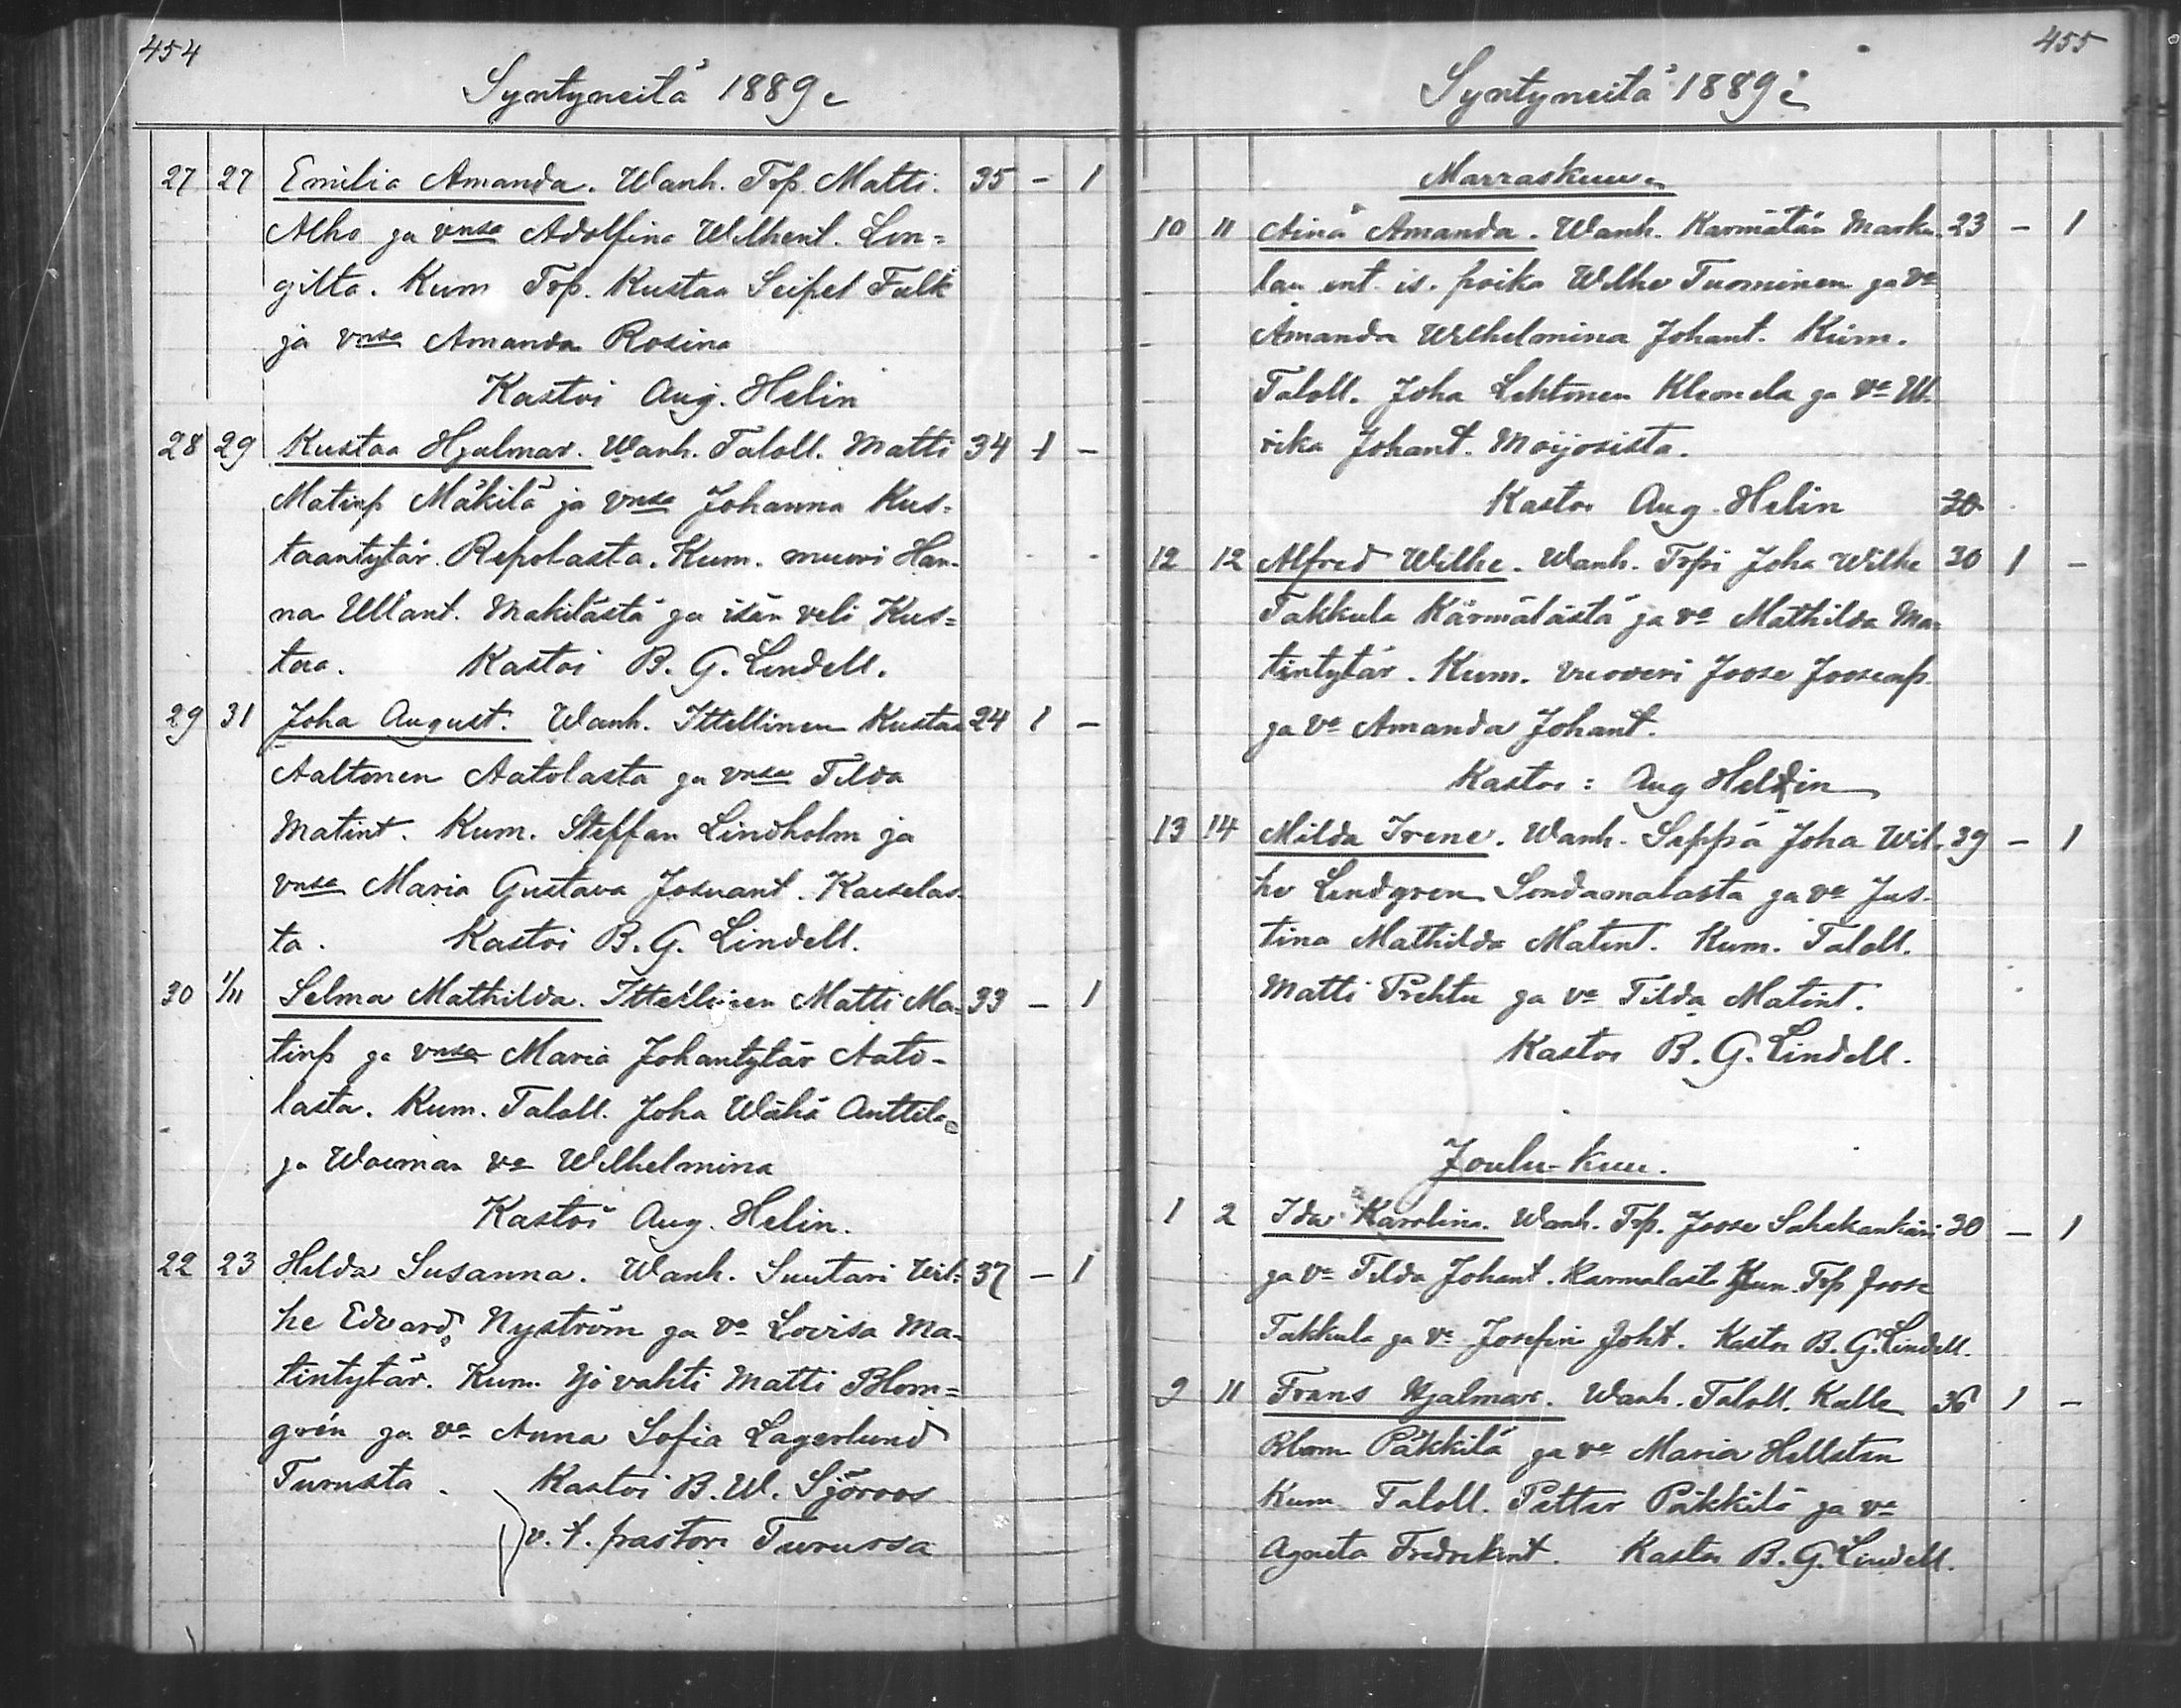 454
Syntyneitä 1889
27 27 Emilia Amanda. Wanh. Trp. Matti 35 - 1
Alho ja vnsa Adolfina Wilhent. Lon=
gilta. Kum Trp. Kustaa Seipel Falk
ja vnsa Amanda Rosina
Kastoi Aug. Helin
28 29 Kustaa Hjalmar. Wanh. Taloll. Matti 34 1 -
Matinp Mäkilä ja vnsa Johanna Kus=
taantytär Repolasta. Kum. muori Han-
na Ullant. Mäkilästä ja isän veli Kus=
taa. Kastoi B. G. Lindell.
29 31 Joha August. Wanh. Ittellinen Kustaa 24 1 -
Aaltonen Aatolasta ja vnsa Tilda
Matint. Kum. Steffan Lindholm ja
vnsa Maria Gustava Josuant. Kaiselas-
ta. Kastoi B. G. Lindell.
30 1/11 Selma Mathilda. Ittellinen Matti Ma- 33 - 1
tinp ja vnsa Maria Johantytär Aato-
lasta. Kum. Taloll. Joha Wähä Anttila
ja Woiman va Wilhelmina
Kastoi Aug. Helin.
22 23 Hilda Susanna. Wanh. Suutari Wil= 37 - 1
he Edvard Nyström ja va Lovisa Ma-
tintytär. Kum. Yövahti Matti Blom=
grén ja va Anna Sofia Lagerlund
Turusta. Kastoi B. W. Sjöroos
v. t. pastori Turussa
455
Syntyneitä 1889
Marraskuu
10 11 Aina Amanda. Wanh. Karmätän Marku 23 - 1
lan ent. is. poika Wilhe Tuominen ja va
Amanda Wilhelmina Johant. Kum.
Taloll. Joha Lehtonen Klemela ja va Ul-
rika Johant. Moijosista.
Kastoi Aug. Helin 30
12 12 Alfred Wilhe. Wanh. Trpi Joha Wilhe 30 1 -
Takkula Kärmälästä ja va Mathilda Ma-
tintytär. Kum. vuoveri Joose Joosenp
ja va Amanda Johant.
Kastoi: Aug Helin
13 14 Milda Irene. Wanh. Seppä Joha Wil- 39 - 1
he Lindgren Sondamalasta ja va Jus-
tina Mathilda Matint. Kum. Taloll.
Matti Prehtu ja va Tilda Matint.
Kastoi B. G. Lindell.
Joulu-kuu.
1 2 Ida Karolina. Wanh. Trp. Joose Sahakankari 30 - 1
ja va Tilda Johant. Karmalasta Kum. Trp Joose
Takkula ja va Josefin Joht. Kastoi B. G. Lindell.
9 11 Frans Hjalmar. Wanh. Taloll. Kalle 36 1 -
Blom Päkkilä ja va Maria Hellsten
Kum Taloll. Petter Päkkilä ja va
Agneta Fredrikint. Kastoi B. G. Lindell.